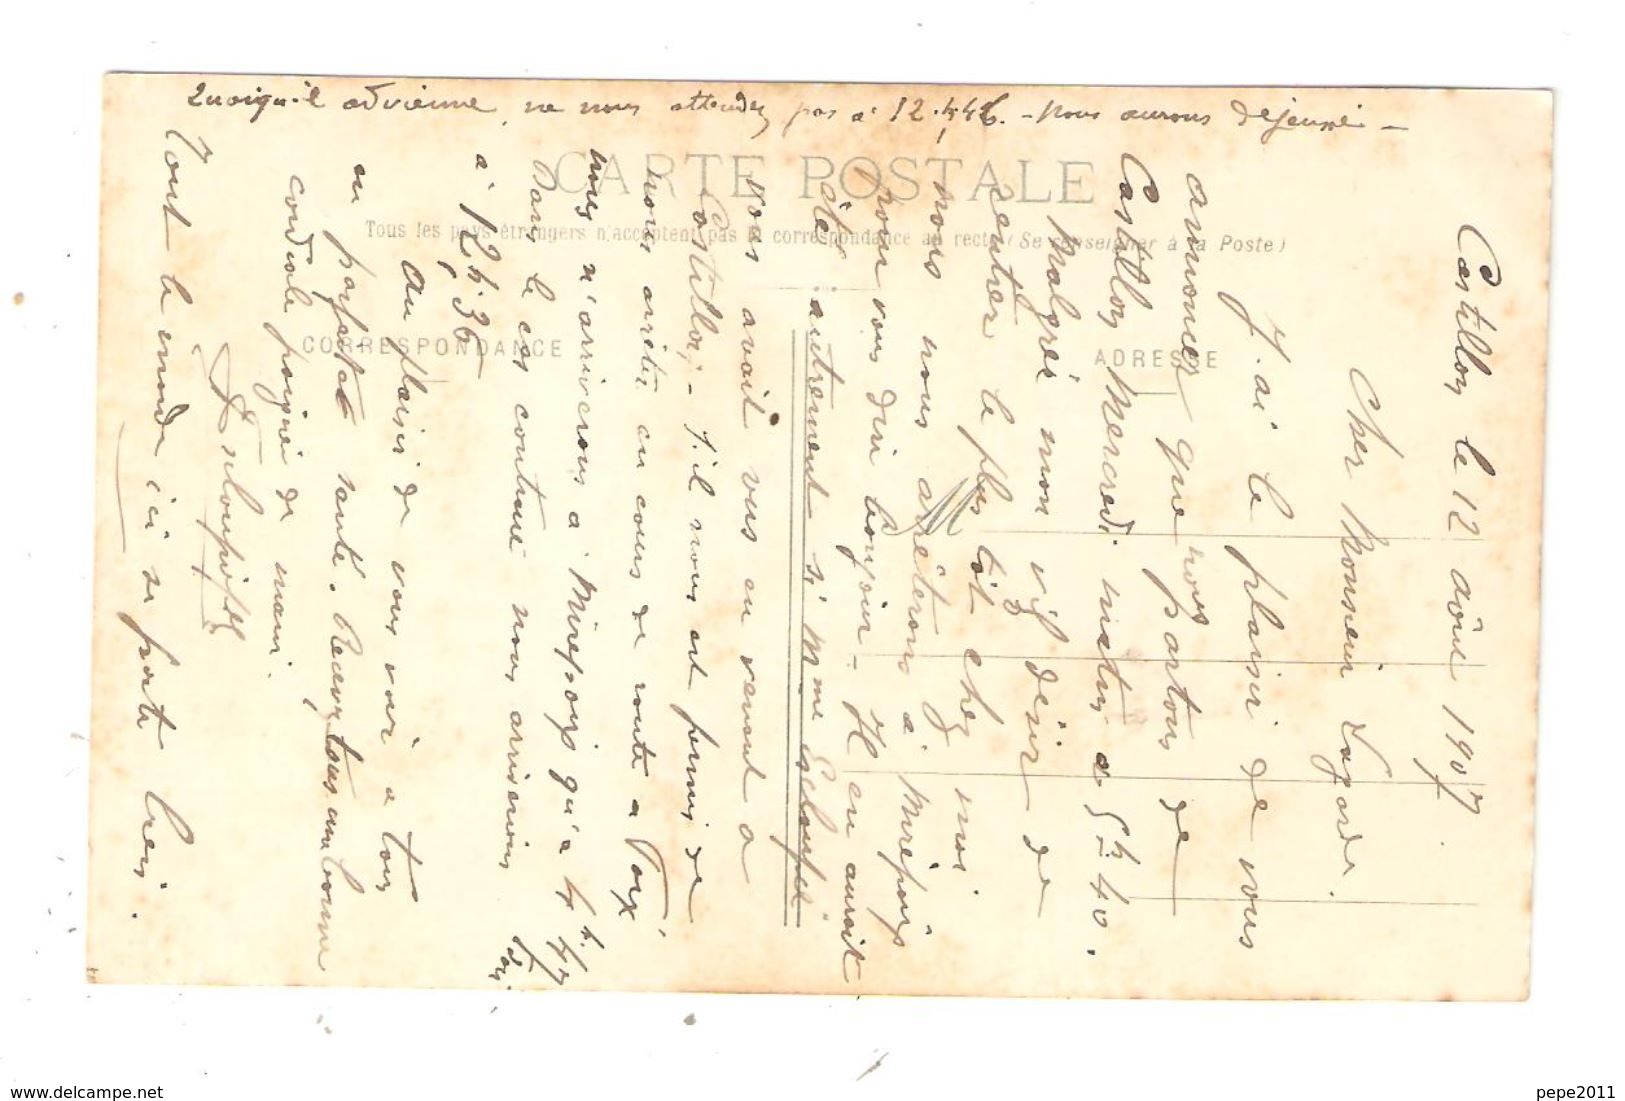 Quoiqu'il advienne, ne nous attendez pas à 12.h. - Nous aurons déjeuné -
CARTE POSTALE
Tous les pays étrangers n'acceptent pas la correspondance au recto (Se renseigner à la Poste)
CORRESPONDANCE
ADRESSE
Castillon le 12 aôut 1907
Cher Monsieur Lagarde.
J'ai le plaisir de vous
annoncer que nous partons de
Castillon Mercredi matin à 5h40.
Malgré mon vif désir de
rentrer le plus tôt chez moi
nous nous arrêterons à Mirepoix
pour vous dire bonjour - Il en aurait
été autrement si Mme
vous avait vus en venant à
Castillon - S'il nous est permis de
nous arrêter en cours de route à Foix
nous n'arriverons à Mirepoix qu'à 4h.47
Dans le cas contraire nous arriverions
à 12h.36
Au plaisir de vous voir tous
en parfaite santé. Recevez tous une bonne
cordiale poignée de main.
Tout le monde ici se porte bien.
pepe2011
www.delcampe.net